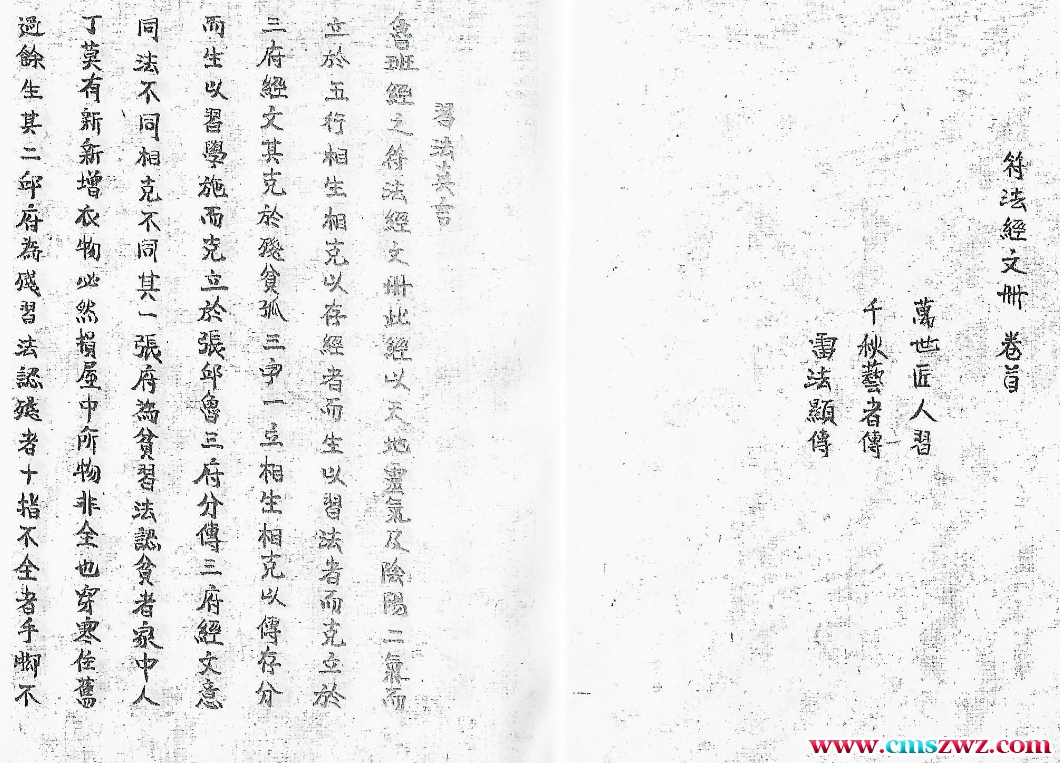 符法經文冊 卷首
萬世匠人習
千秋藝者傳
雷法顯傳
習法美言
魯班經之符法經文冊此經以天地靈氣及陰陽二氣而
立於五行相生相克以存經者而生以習法者而克立於
三府經文其克於殘貧孤三字一立相生相克以傳存分
而生以習學施而克立於張邱魯三府分傳三府經文意
同法不同相克不同其一張府為貧習法認貧者家中人
丁莫有新新增衣物必然損屋中所物非全也穿寒住舊
過餘生其二邱府為殘習法認殘者十指不全者手腳不
www.cmszwz.com